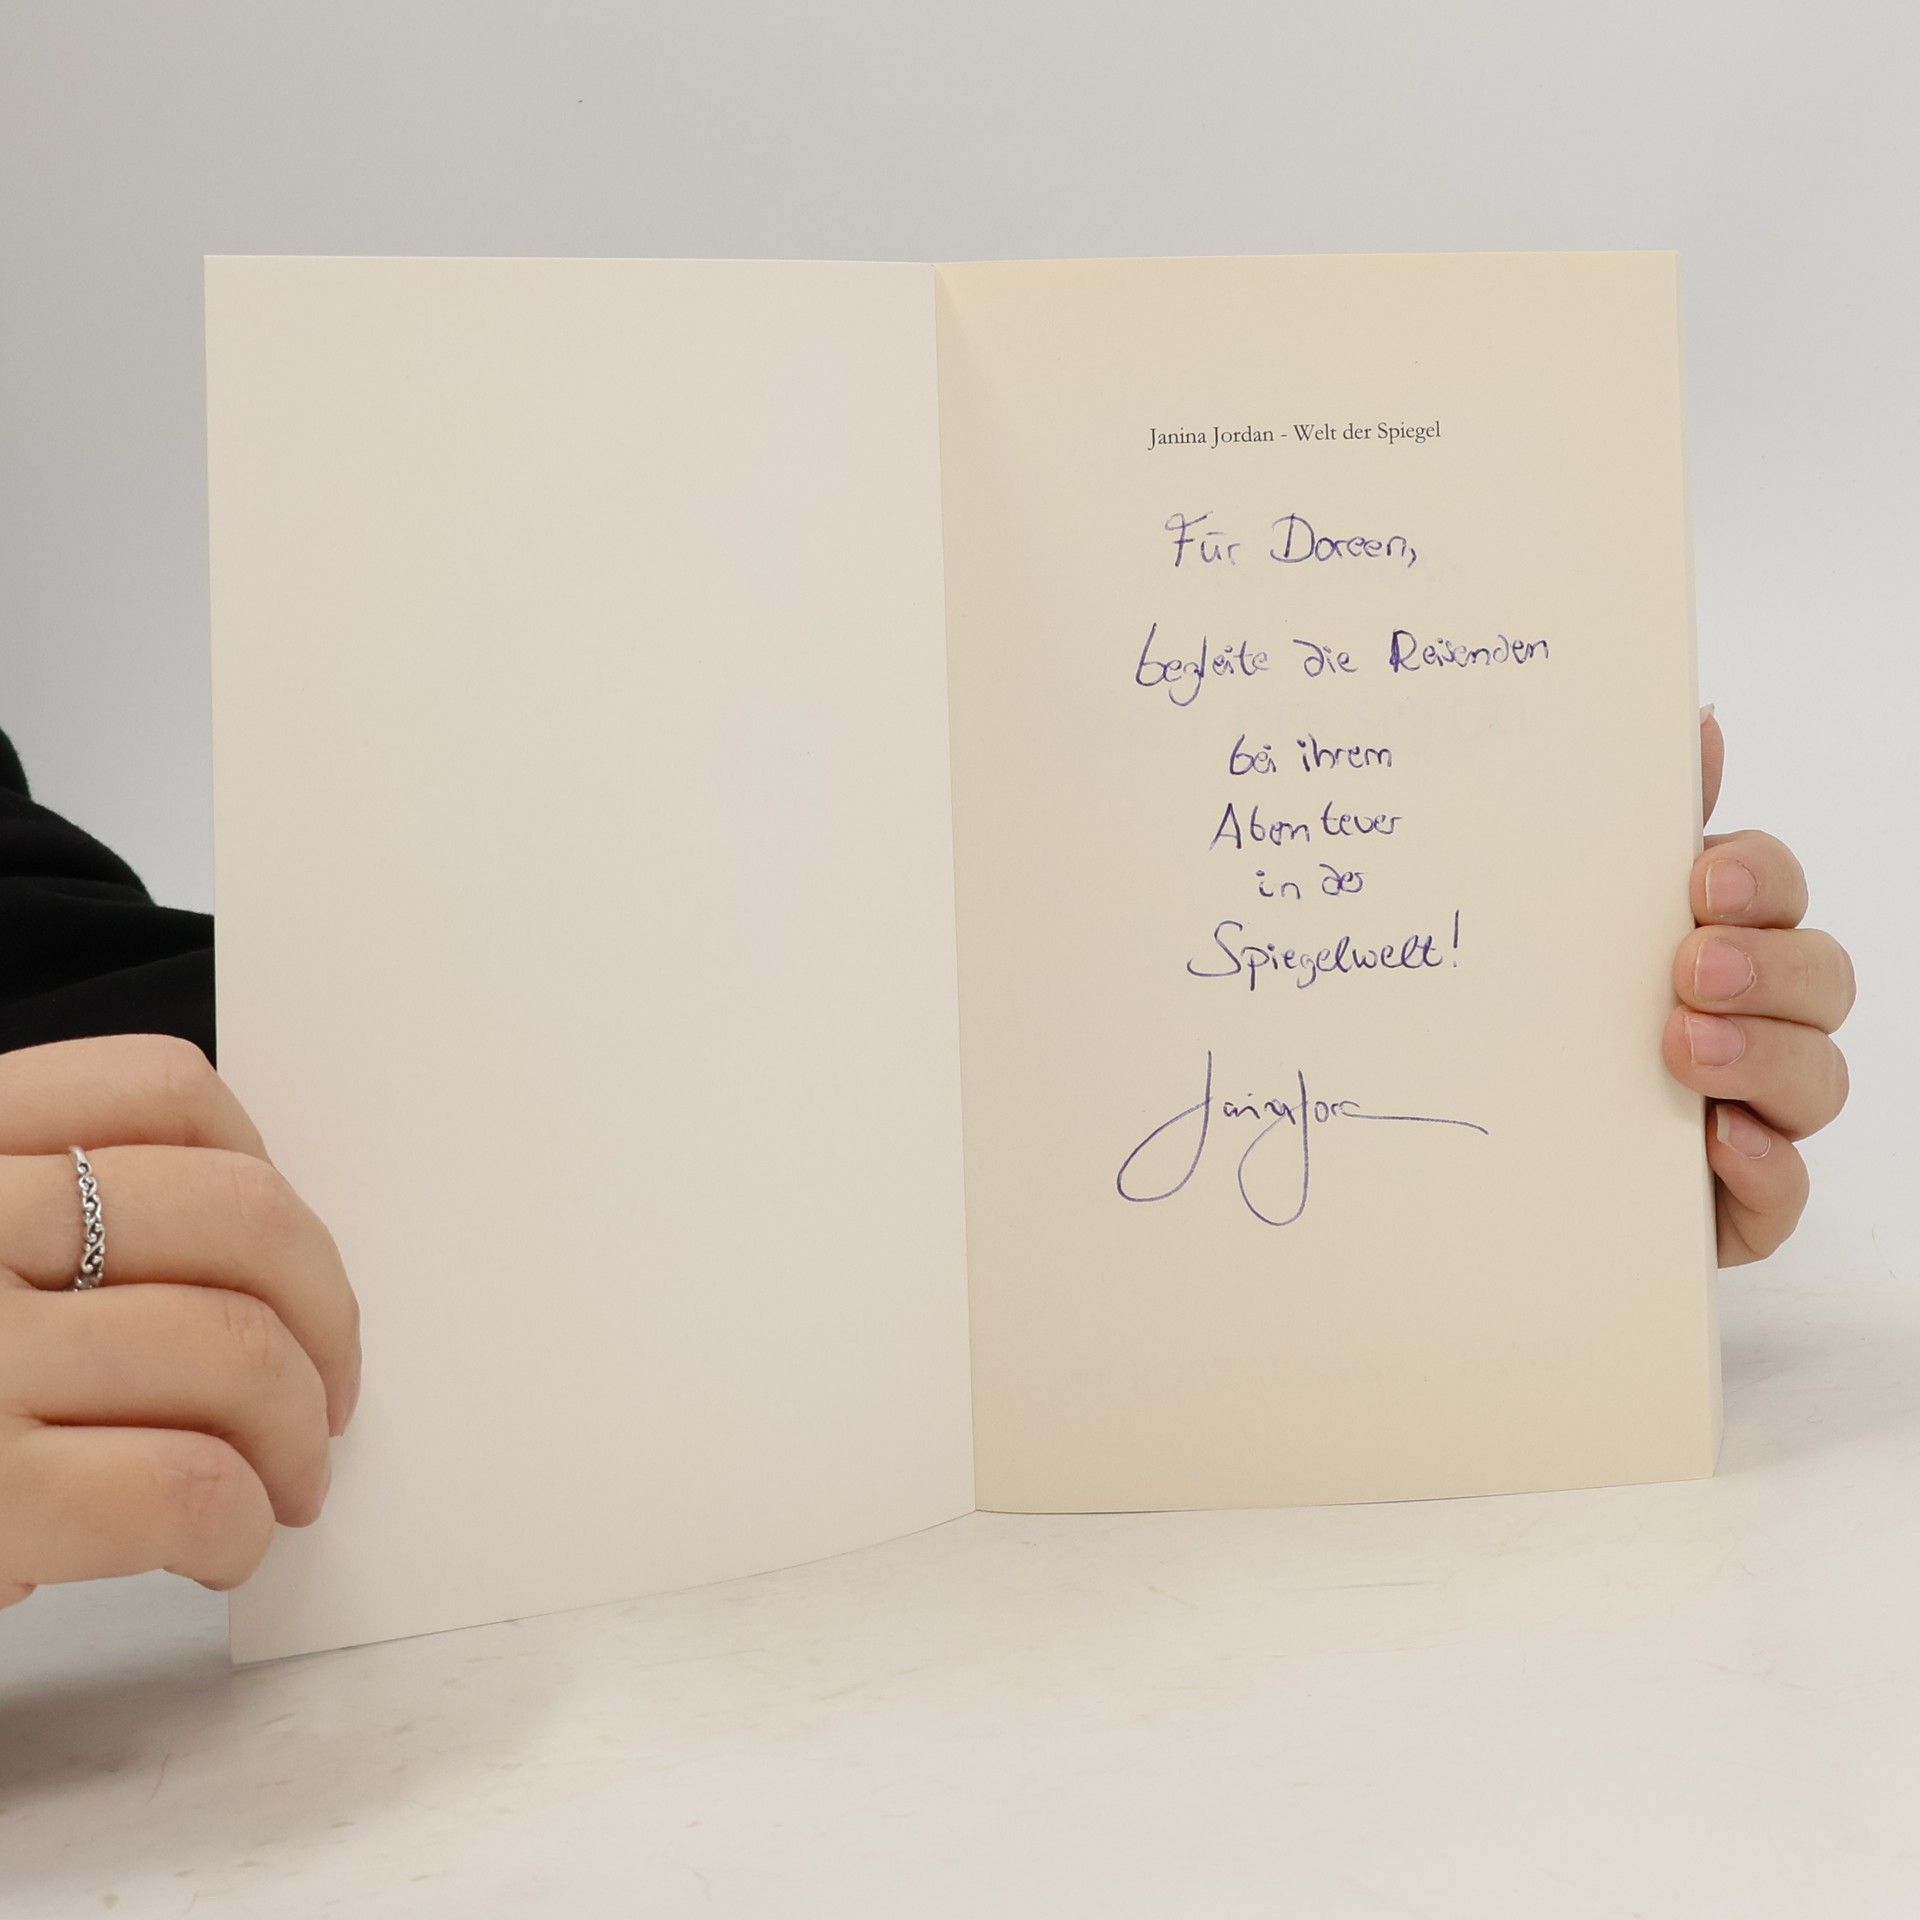 Janina Jordan - Welt der Spiegel
Für Doreen,
begleite die Reisenden
bei ihrem
Abenteuer
in der
Spiegelwelt!